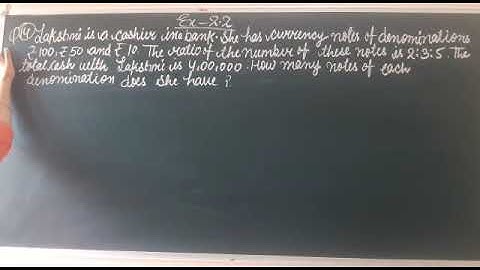 Ex-2.2
Q(4) Lakshmi is a cashier in a bank. She has currency notes of denominations
₹100, ₹50 and ₹10. The ratio of the number of these notes is 2:3:5. The
total cash with Lakshmi is 4,00,000. How many notes of each
denomination does she have?